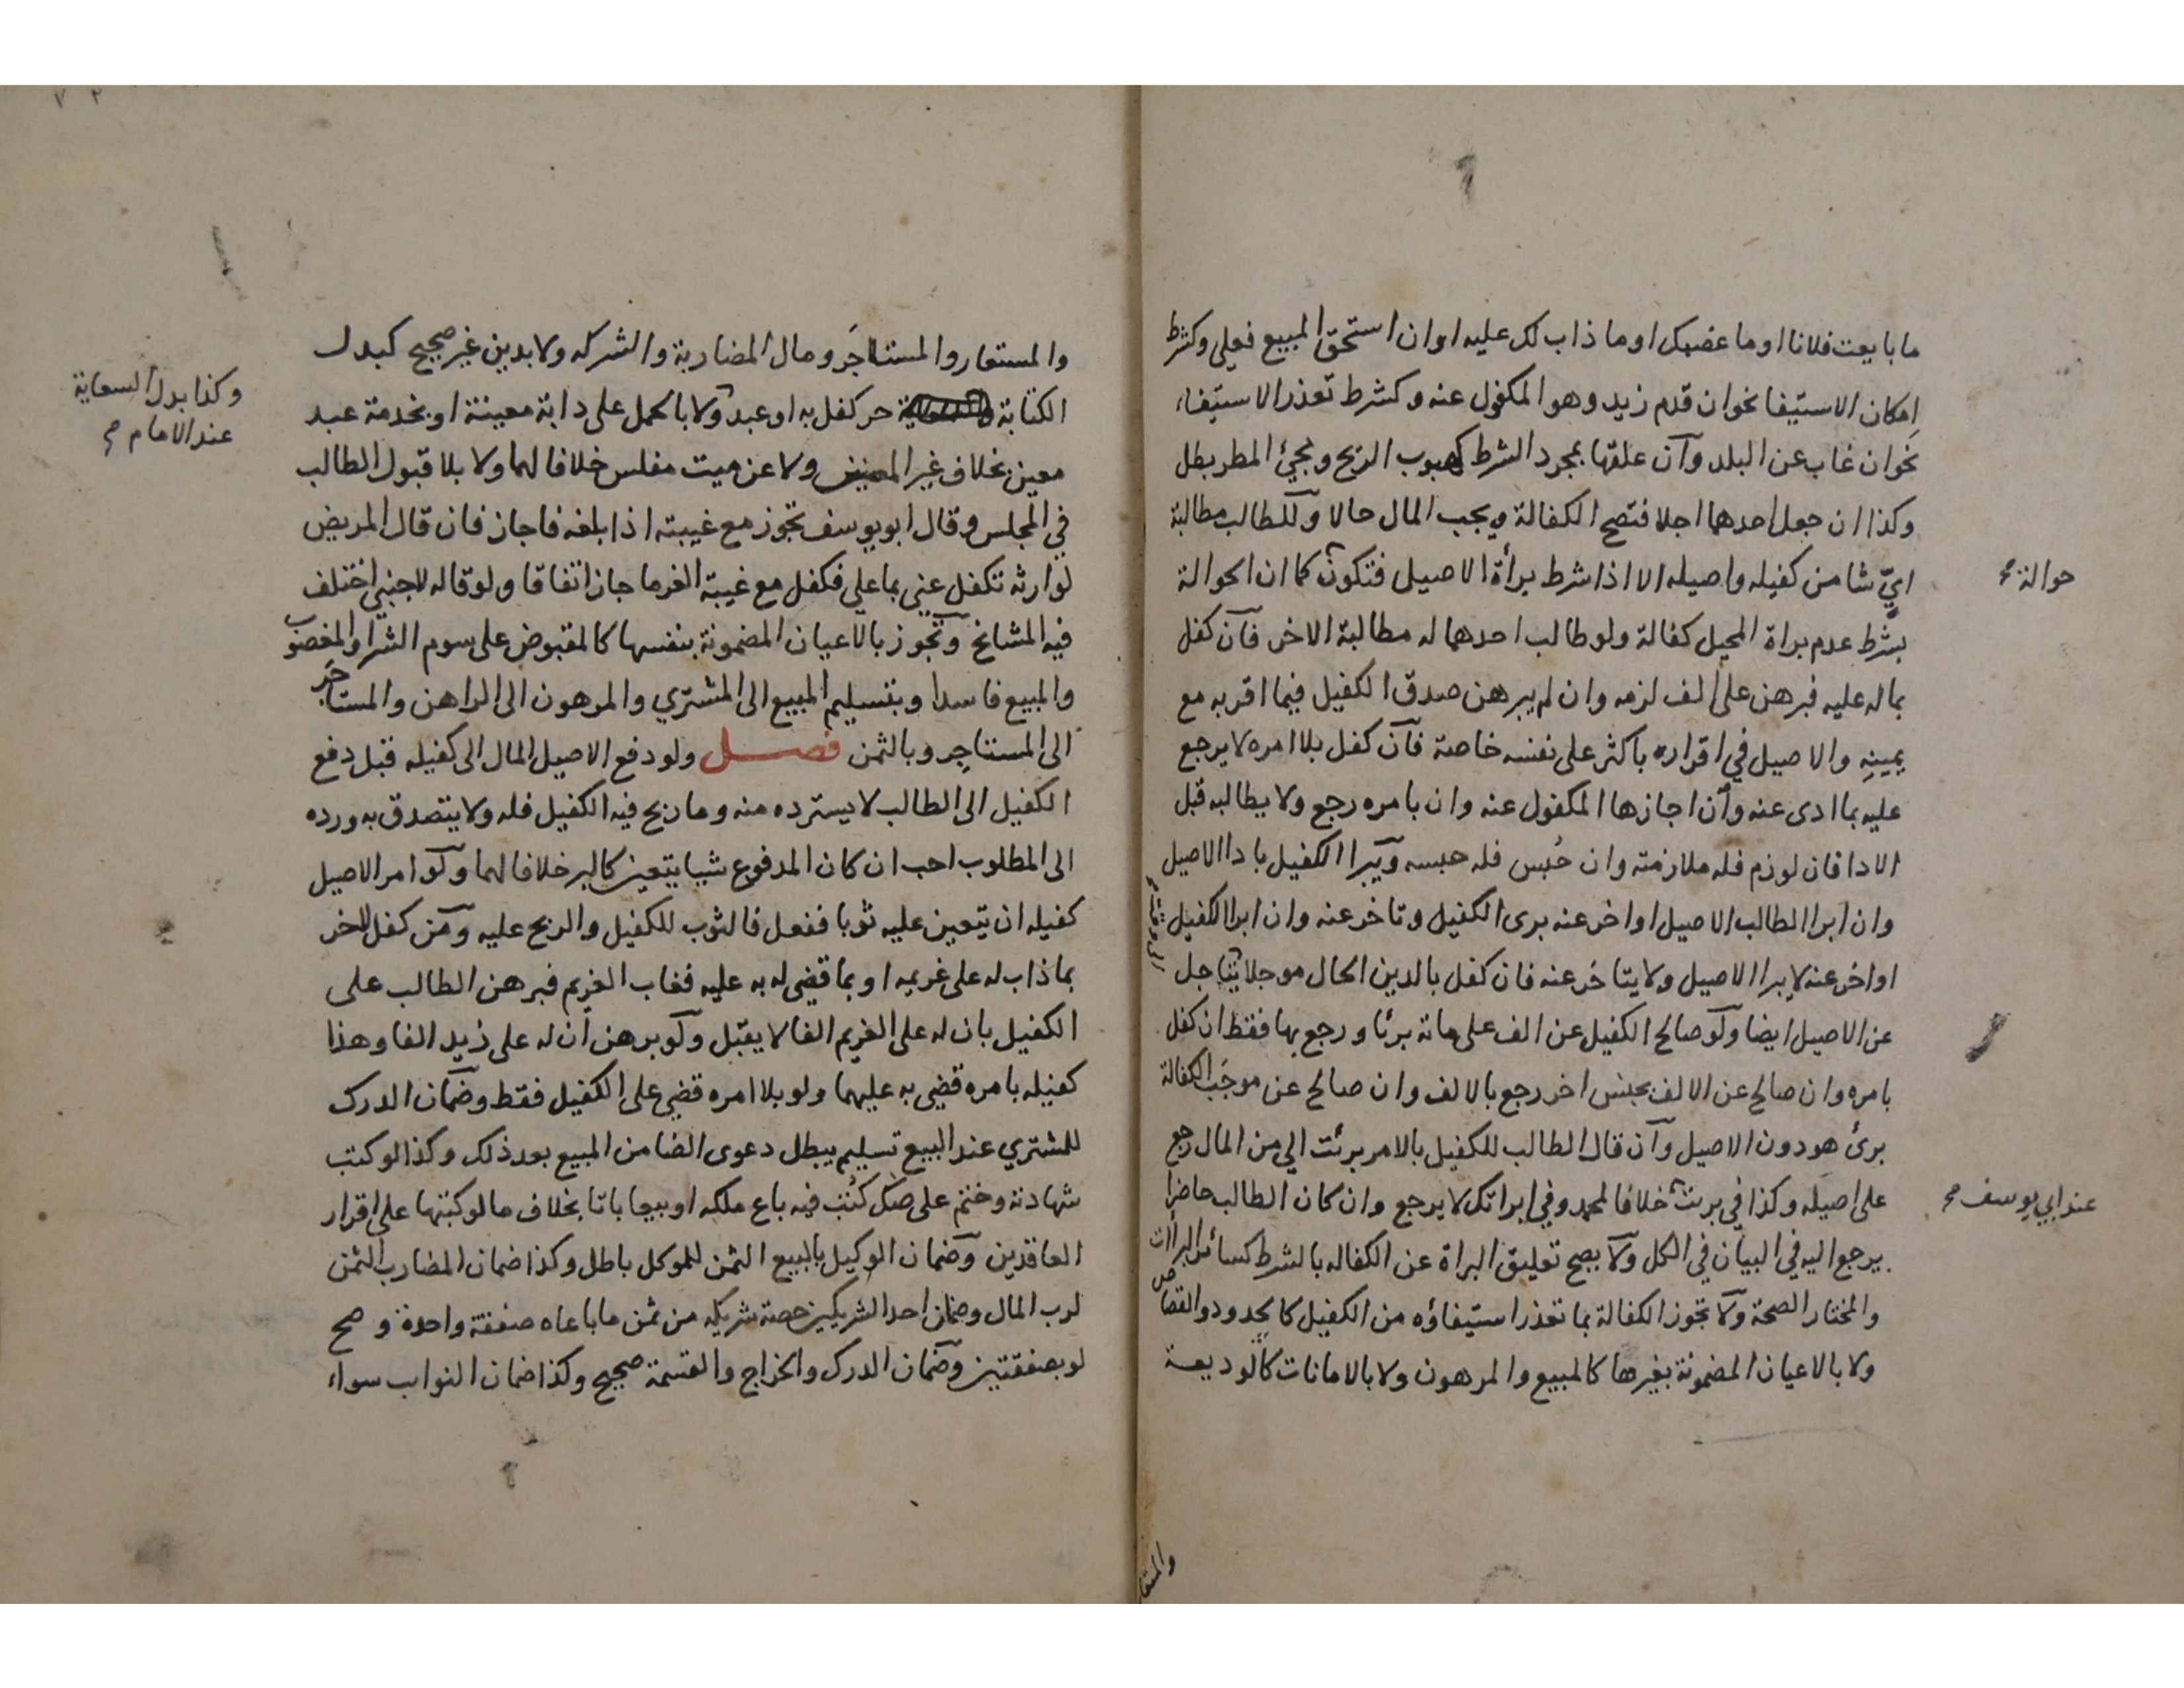 ما بايعت فلانا او ما غصبك او ما ذاب لك عليه او ان استحق المبيع فعلي وكشرط
امكان الاستيفا نحو ان قدم زيد وهو المكفول عنه وكشرط تعذر الاستيفاء
نحو ان غاب عن البلد وان علقها بمجرد الشرط كهبوب الريح ومجئ المطر بطل
وكذا ان جعل احدهما اجلا فتصح الكفالة ويجب المال حالا وللطالب مطالبة
ايّ شا من كفيله واصيله الا اذا شرط برأة الاصيل فتكون كما ان الحوالة
حوالة صح
بشرط عدم براة المحيل كفالة ولو طالب احدهما له مطالبة الاخر فان كفل
بماله عليه فبرهن على الف لزمه وان لم يبرهن صدق الكفيل فيما اقر به مع
يمينه والاصيل في اقراره باكثر على نفسه خاصة فان كفل بلا امره لا يرجع
عليه بما ادى عنه وان اجازها المكفول عنه وان بامره رجع ولا يطالبه قبل
الادا فان لوزم فله ملازمته وان حُبس فله حبسه ويبرا الكفيل بادا الاصيل
وان ابرا الطالب الاصيل او اخر عنه برى الكفيل وتاخر عنه وان ابرا الكفيل
او اخر عنه لا يبرا الاصيل ولا يتاخر عنه فان كفل بالدين الحال موجلا يتاجل
عن الاصيل ايضا ولو صالح الكفيل عن الف على مائة برئا ورجع بها فقط ان كفل
بامره وان صالح عن الالف بجنس اخر رجع بالالف وان صالح عن موجَب الكفالة
برئ هو دون الاصيل وان قال الطالب للكفيل بالامر برئت الي من المال رجع
على اصيله وكذا في برئت خلافا لمحمد وفي ابراتك لا يرجع وان كان الطالب حاضرا
عند ابي يوسف صح
يرجع اليه في البيان في الكل ولا يصح تعليق البراة عن الكفاله بالشرط كسائر البراات
والمختار الصحة ولا تجوز الكفالة بما تعذر استيفاؤه من الكفيل كالحدود والقصاص
ولا بالاعيان المضمونة بغيرها كالمبيع والمرهون ولا بالامانات كالوديعة
والمستعا
٧٢
والمستعار والمستاجَر ومال المضاربة والشركه ولا بدين غير صحيح كبدل
الكتابة حر كفل به او عبد ولا بالحمل على دابة معينة او بخدمة عبد
وكذا بدل السعاية
عند الامام صح
معين بخلاف غير المعين ولا عن ميت مفلس خلافا لهما ولا بلا قبول الطالب
في المجلس وقال ابو يوسف تجوز مع غيبته اذا بلغه فاجاز فان قال المريض
لوارثه تكفل عني بما علي فكفل مع غيبة الغرما جاز اتفاقا ولو قاله لاجنبي اختلف
فيه المشايخ وتجوز بالاعيان المضمونة بنفسها كالمقبوض على سوم الشرا والمغصوب
والمبيع فاسدا وبتسليم المبيع الى المشتري والمرهون الى الراهن والمستاجَر
الى المستاجِر وبالثمن فصل ولو دفع الاصيل المال الى كفيله قبل دفع
الكفيل الى الطالب لا يسترده منه وما ربح فيه الكفيل فله ولا يتصدق به ورده
الى المطلوب احب ان كان المدفوع شيا يتعين كالبر خلافا لهما ولو امر الاصيل
كفيله ان يتعين عليه ثوبا ففعل فالثوب للكفيل والربح عليه ومن كفل لاخر
بما ذاب له على غريمه او بما قضي له به عليه فغاب الغريم فبرهن الطالب على
الكفيل بان له على الغريم الفا لا يقبل ولو برهن ان له على زيد الفا وهذا
كفيله بامره قضي به عليهما ولو بلا امره قضي على الكفيل فقط وضمان الدرك
للمشتري عند البيع تسليم يبطل دعوى الضامن المبيع بعد ذلك وكذا لو كتب
شهادته وختم على صك كُتب فيه باع ملكه او بيعا باتا بخلاف ما لو كتبها على اقرار
العاقدين وضمان الوكيل بالبيع الثمن للموكل باطل وكذا ضمان المضارب الثمن
لرب المال وضمان احد الشريكين حصة شريكه من ثمن ما باعاه صفقة واحدة وصح
لو بصفقتين وضمان الدرك والخراج والقسمة صحيح وكذا ضمان النوايب سواء